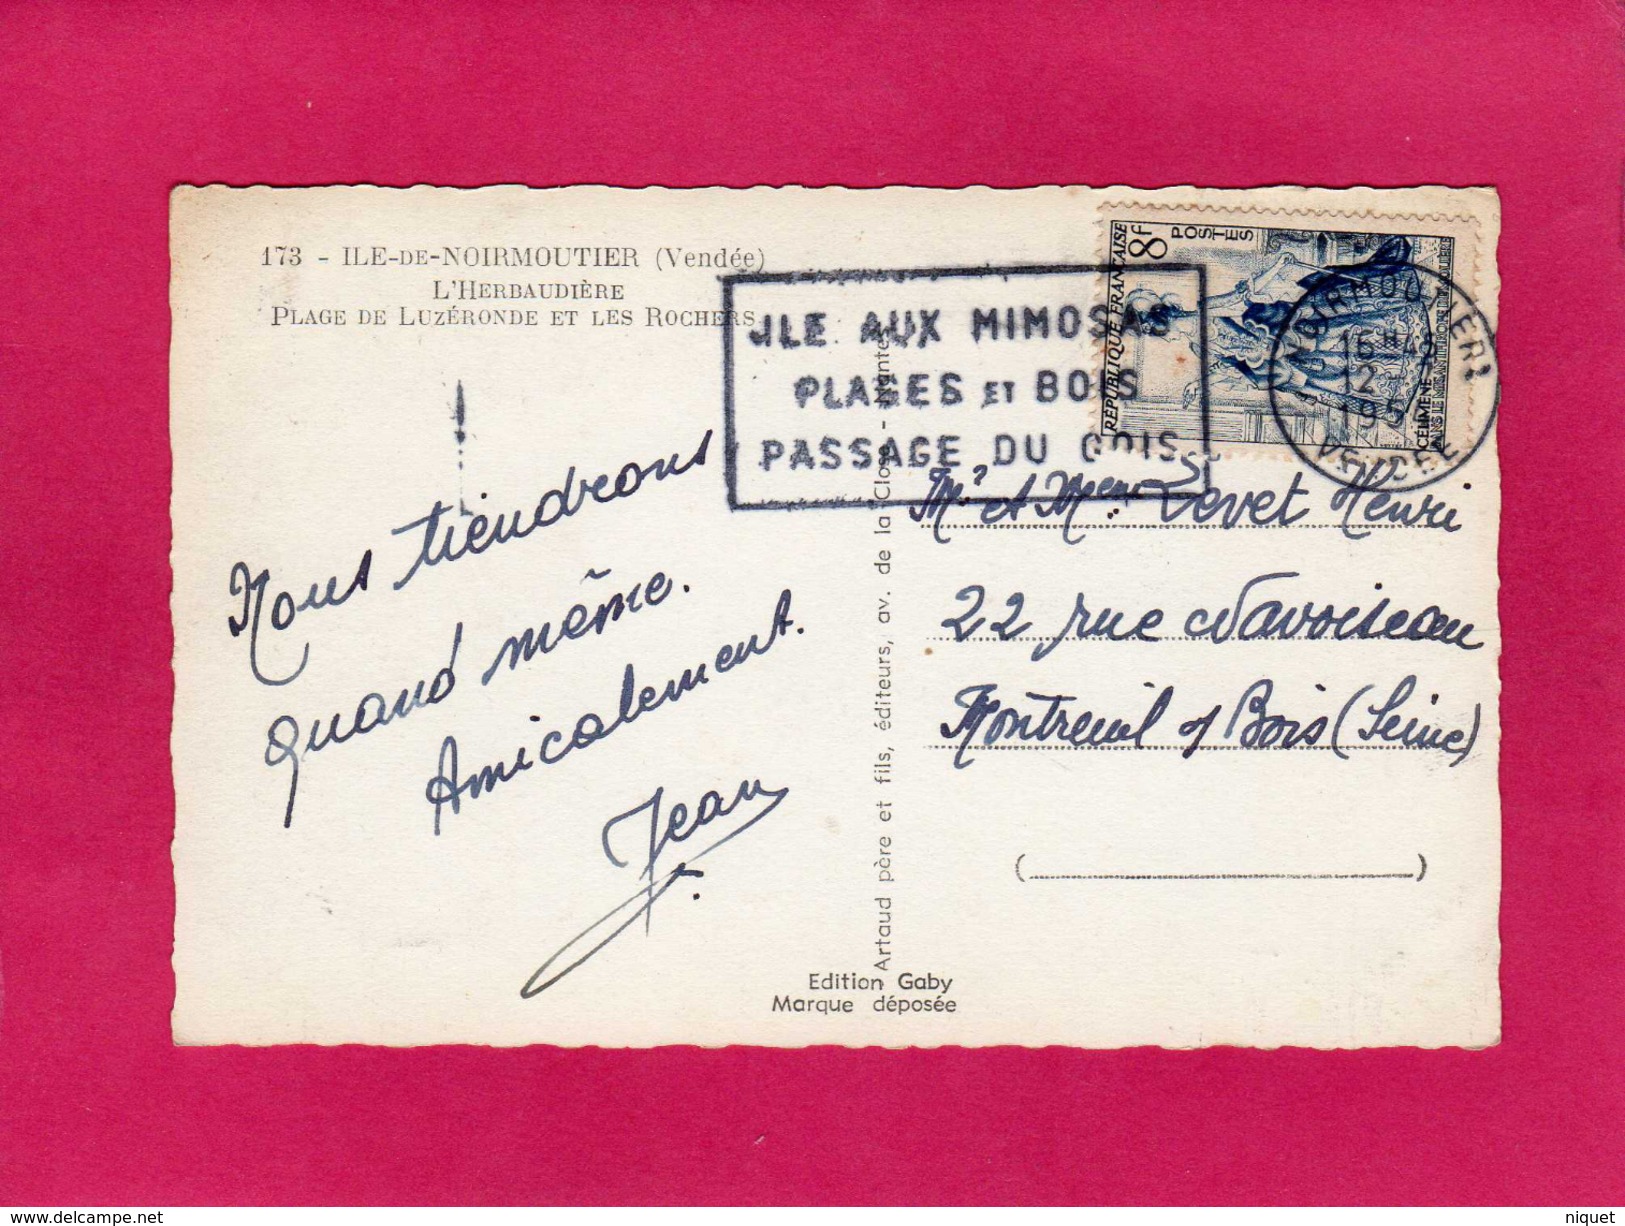 173 - ILE-DE-NOIRMOUTIER (Vendée)
L'HERBAUDIÈRE
PLAGE DE LUZÉRONDE ET LES ROCHERS
ILE AUX MIMOSAS
PLAGES ET BOIS
PASSAGE DU GOIS
RÉPUBLIQUE FRANÇAISE
8f
POSTES
CÉLIMÈNE
DANS LE MISANTHROPE DE MOLIÈRE
NOIRMOUTIER
16H
12
195
VENDÉE
Nous tiendrons
quand même.
Amicalement.
Jean
Artaud père et fils, éditeurs, av. de la Close - Nantes
Mr et Mme Levet Henri
22 rue Navoiseau
Montreuil s/ Bois (Seine)
( )
Edition Gaby
Marque déposée
delcampe.net
niquet